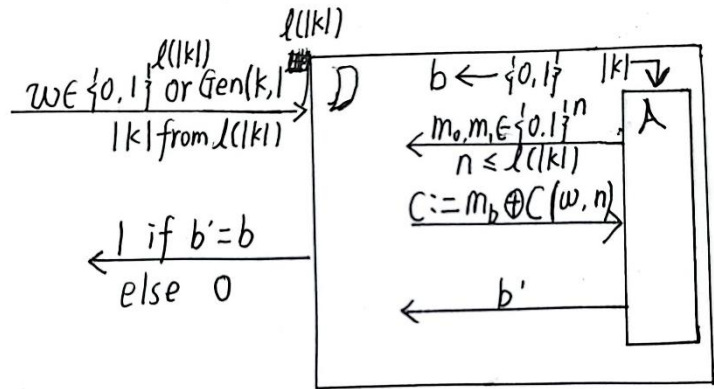 l(|k|)
w∈{0,1}^l(|k|) or Gen(k,1^l(|k|))
|k| from l(|k|)
D
b ← {0,1}
|k|
A
m₀,m₁∈{0,1}^n
n ≤ l(|k|)
C:=m_b⊕C(w,n)
b'
1 if b'=b
else 0